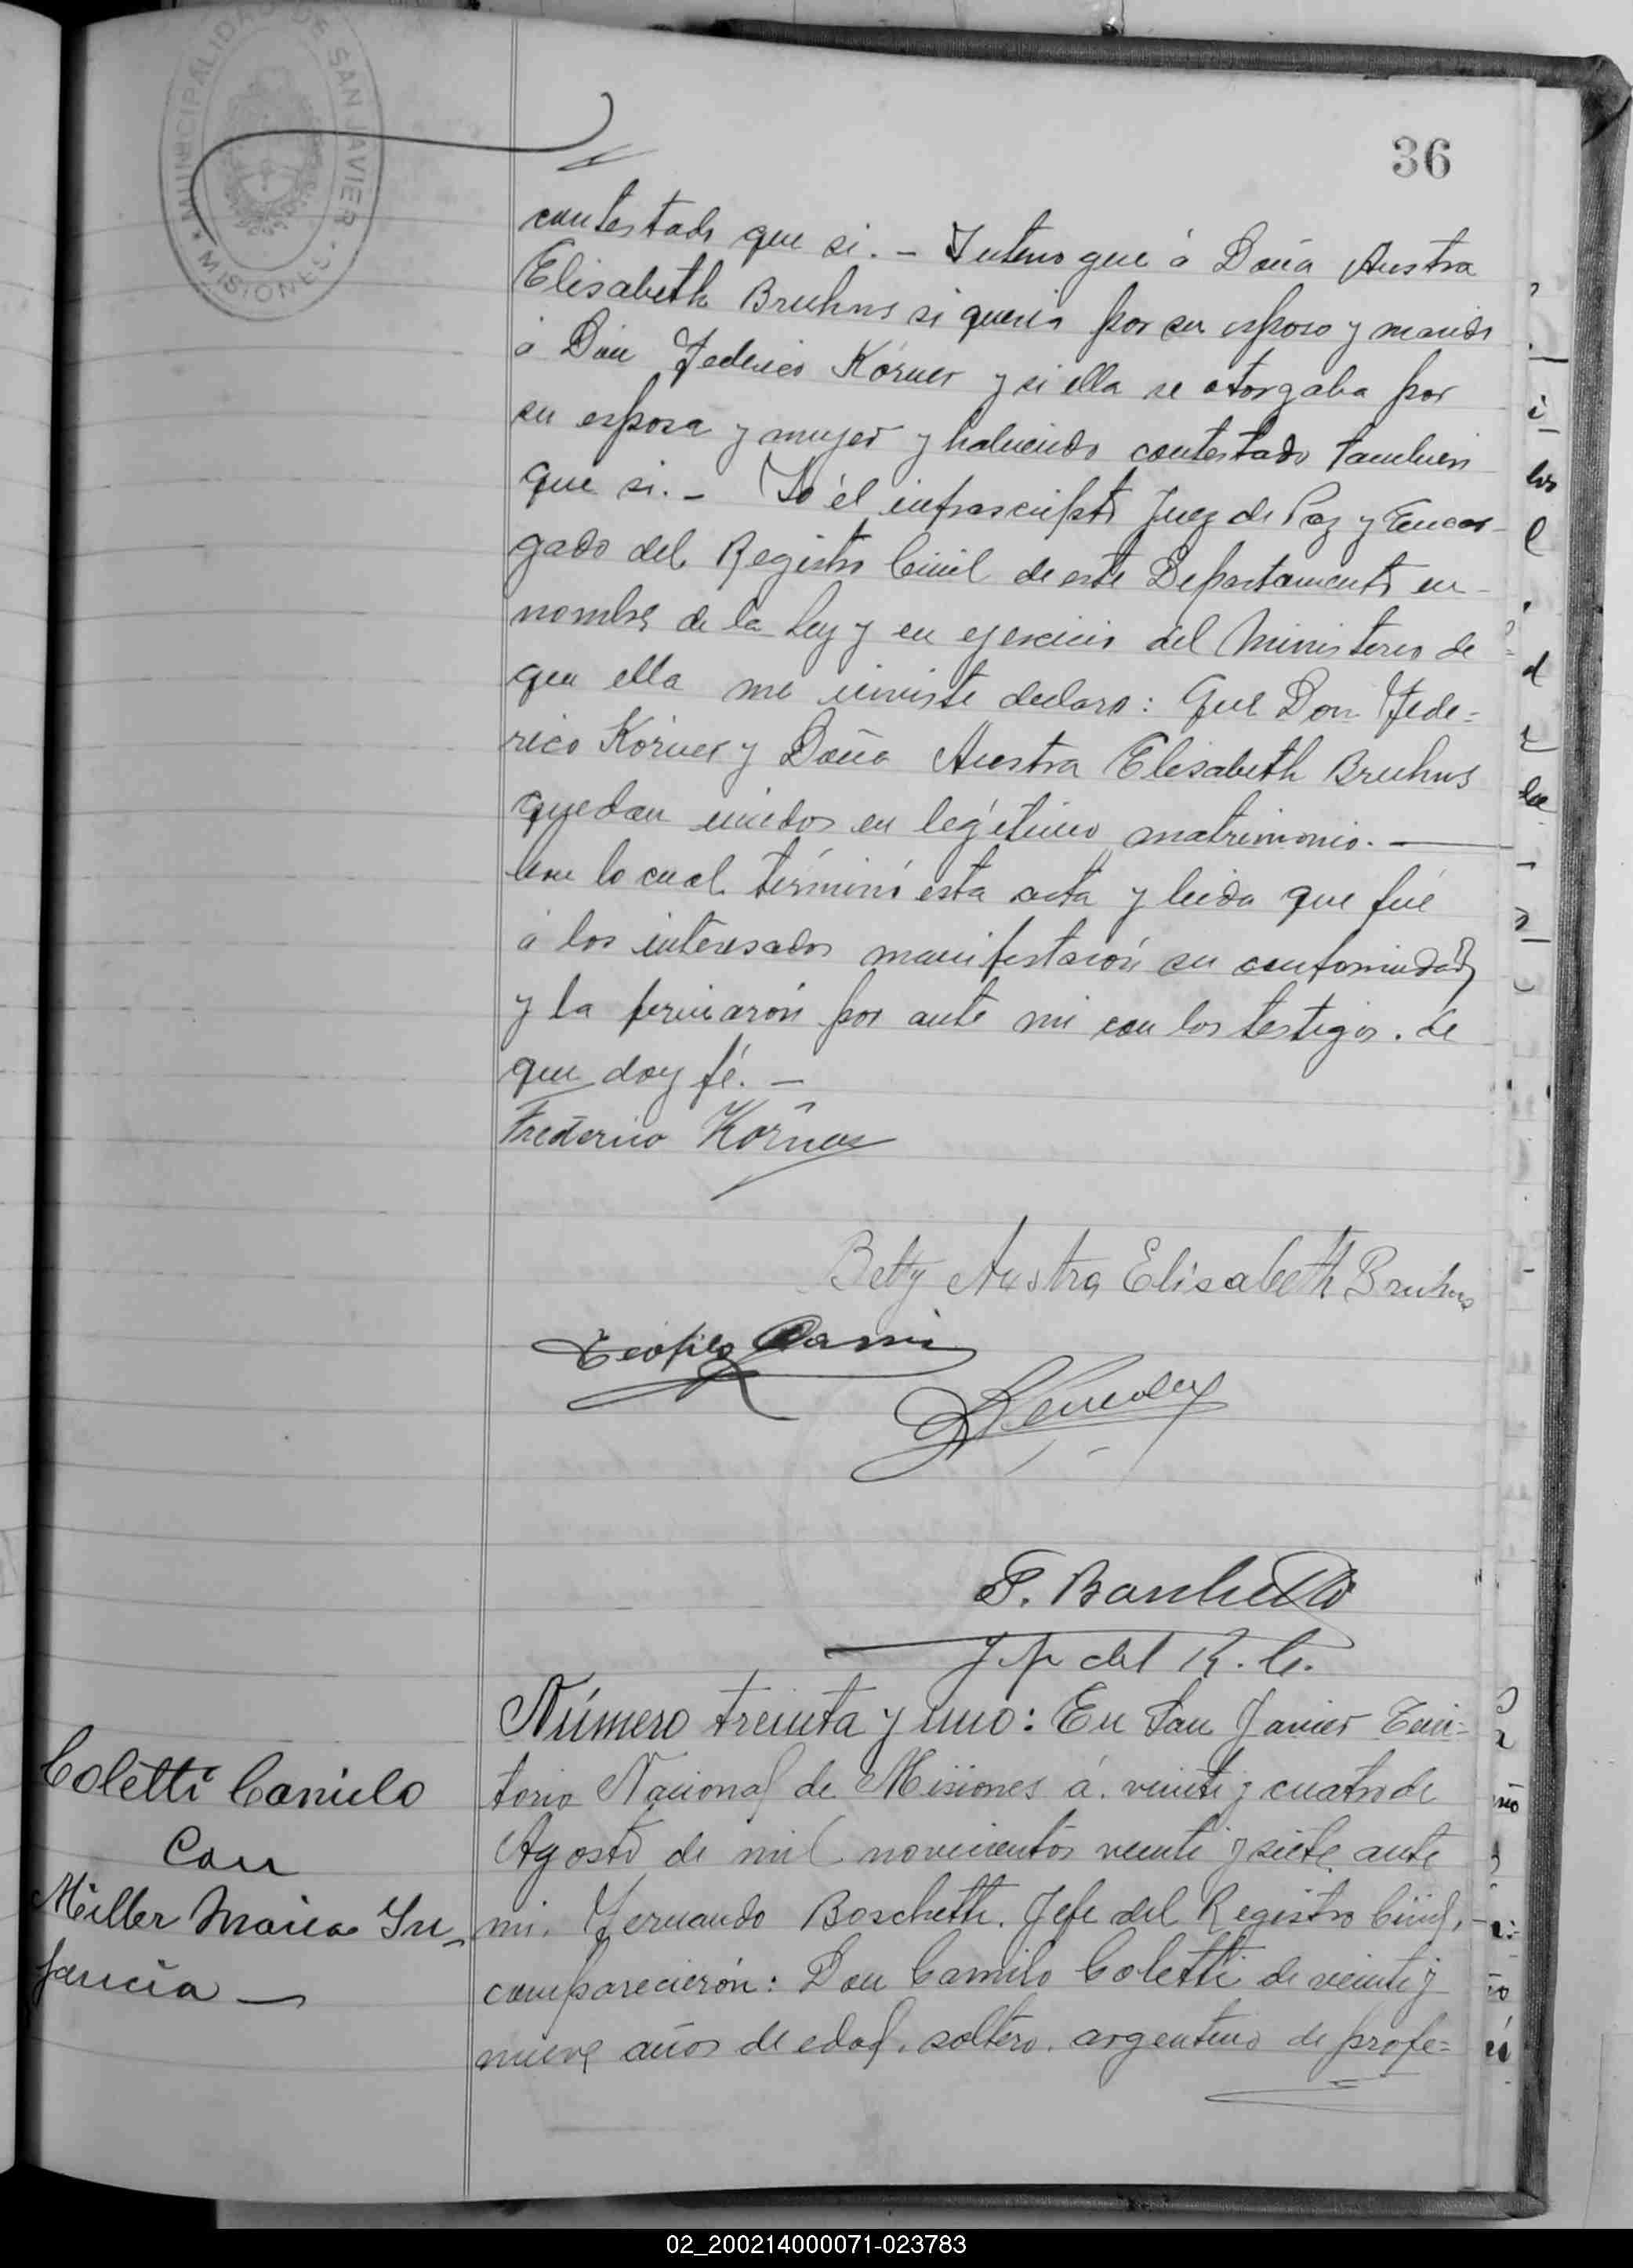 MUNICIPALIDAD DE SAN JAVIER - MISIONES
36
contestado que si. - Interrogue á Doña Austra
Elisabeth Bruhns si queria por su esposo y marido
á Don Federico Körner y si ella se otorgaba por
su esposa y mujer y habiendo contestado tambien
que si. - Yo él infrascripto Juez de Paz y Encar-
gado del Registro Civil de este Departamento en
nombre de la Ley y en ejercicio del Ministerio de
que ella me inviste declaro: Que Don Fede=
rico Körner y Doña Austra Elisabeth Bruhns
quedan unidos en legítimo matrimonio. -
Con lo cual términó esta acta y leida que fué
á los interesados manifestarón su conformidad
y la firmarón por ante mi con los testigos. de
que doy fé. -
Frederico Körner
Betty Austra Elisabeth Bruhns
Teofilo
F. Boschetti
J. del R. C.
Número treinta y uno: En San Javier Terri=
torio Nacional de Misiones á. veinte y cuatro de
Agosto de mil novecientos veinte y siete. ante
mi. Fernando Boschetti. Jefe del Registro Civil,
comparecierón: Don Camilo Coletti de veinte y
nueve años de edad. soltero. argentino de profe=
Coletti Camilo
Con
Miller Maria In-
fancia -
02_200214000071-023783